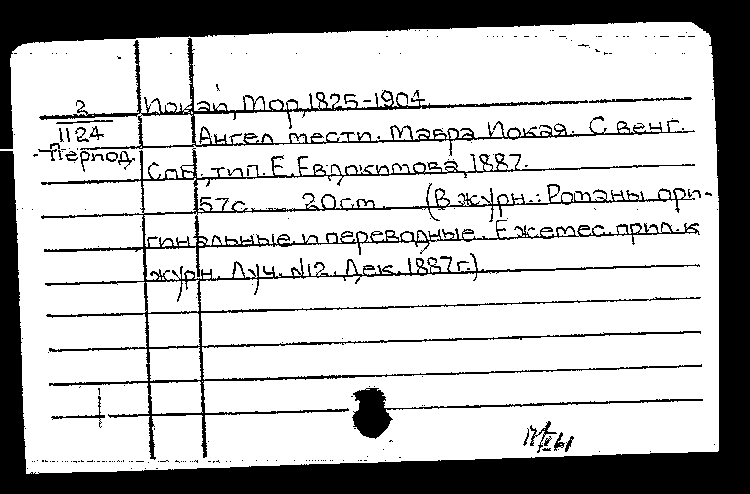 2
1124
Период.
Йокаи, Мор, 1825-1904.
Ангел мести. Мавра Иокая. С венг.
Спб., тип. Е. Евдокимова, 1887.
57с. 20cm. (В журн.: Романы ори-
гинальные и переводные. Ежемес. прил. к
журн. Луч. №12. Дек. 1887г.).